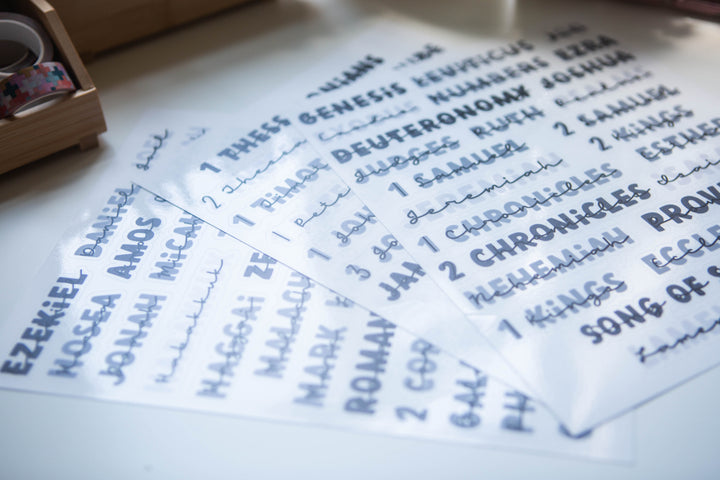 GENESIS
LEVITICUS
EZRA
EXODUS
NUMBERS
JOSHUA
DEUTERONOMY
JUDGES
RUTH
2 SAMUEL
1 SAMUEL
2 KINGS
Jeremiah
ESTHER
1 CHRONICLES
2 CHRONICLES
NEHEMIAH
1 KINGS
SONG OF S
PROV
ECCLE
Lamen
1 THESS
2 Thess
1 TIMOT
1 Pete
1 JOH
3 Jo
JAM
DANIEL
AMOS
MICAH
EZEKIEL
HOSEA
JONAH
Habakkuk
HAGGAI
MALACHI
MARK
ROMAN
2 COR
GAL
PH